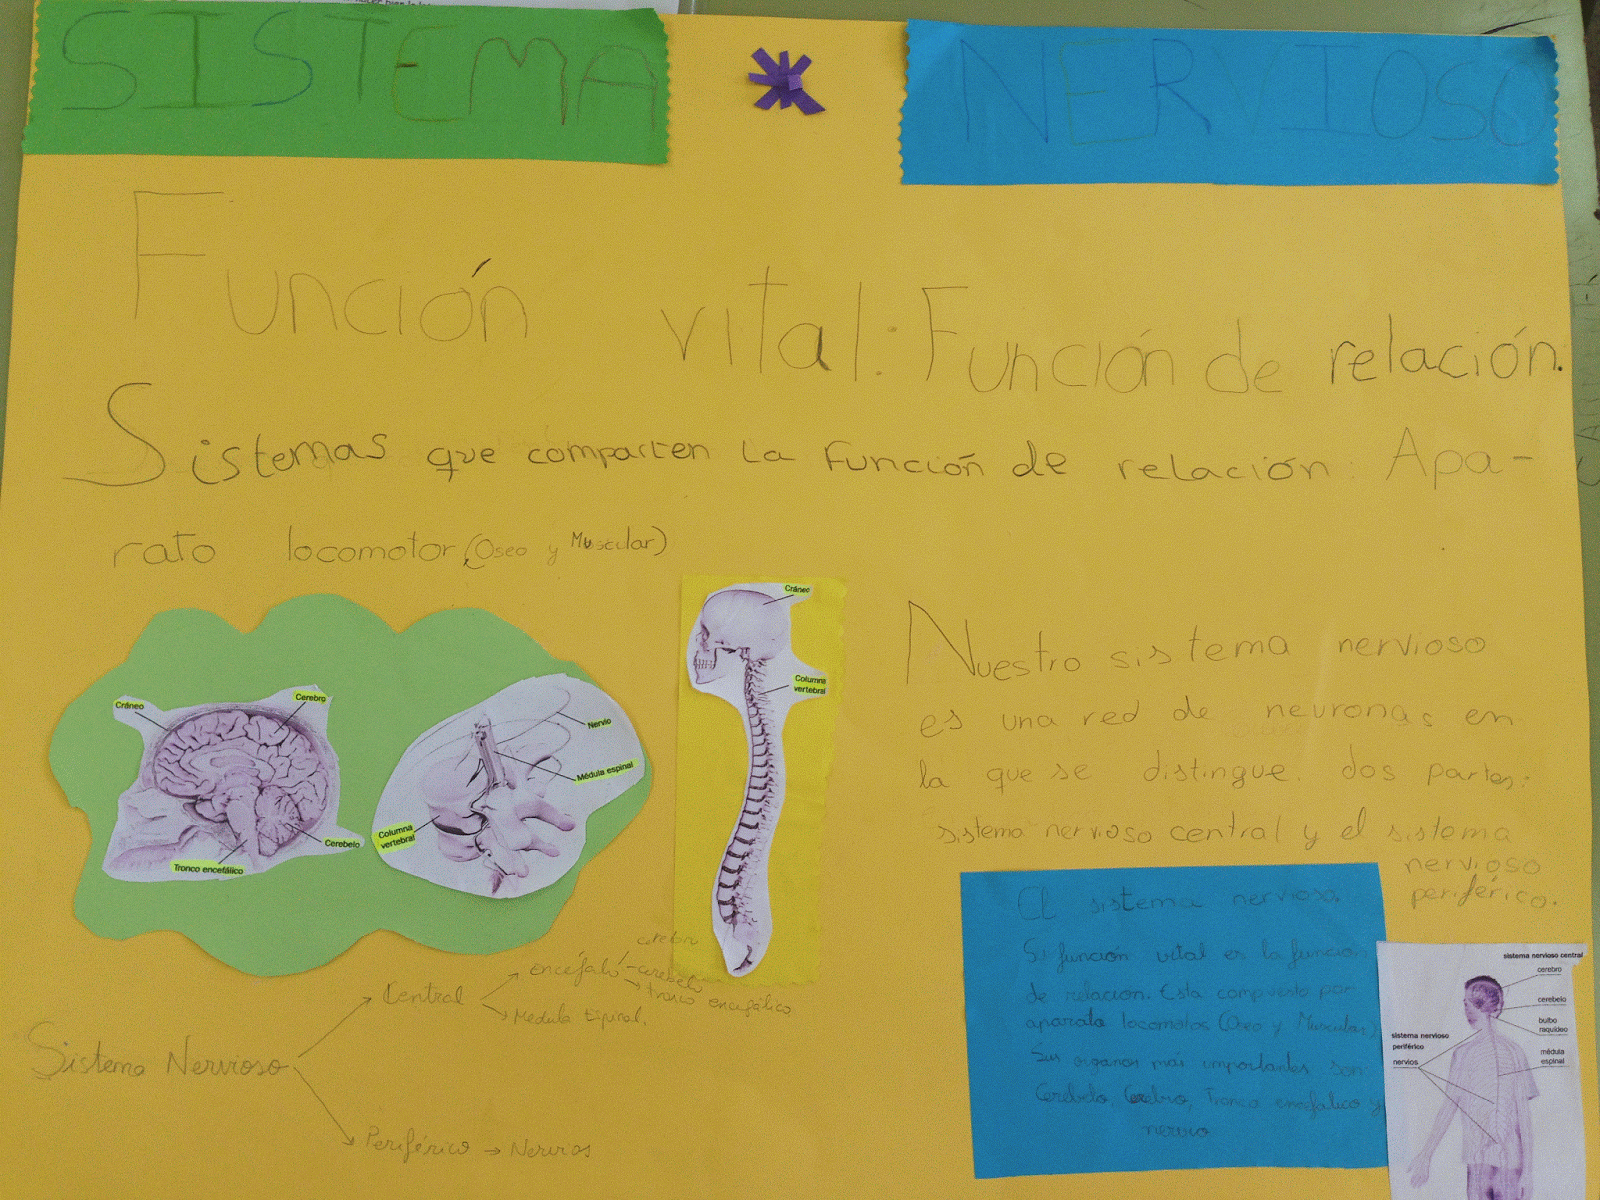 SISTEMA NERVIOSO
Función vital: Función de relación.
Sistemas que comparten la función de relación: Apa-
rato locomotor (Oseo y Muscular)
Cráneo
Cerebro
Cerebelo
Tronco encefálico
Nervio
Médula espinal
Columna
vertebral
Cráneo
Columna
vertebral
Nuestro sistema nervioso
es una red de neuronas en
la que se distingue dos partes:
sistema nervioso central y el sistema
nervioso
periférico.
Sistema Nervioso
Central
encéfalo
cerebro
cerebelo
tronco encefálico
Medula Espinal.
Periférico → Nervios
El sistema nervioso.
Su función vital es la función
de relacion. Esta compuesto por
aparato locomotor (Oseo y Muscular)
Sus organos mas importantes son
Cerebelo, Cerebro, Tronco encefalico y
nervio
sistema nervioso central
cerebro
cerebelo
bulbo
raquídeo
médula
espinal
sistema nervioso
periférico
nervios